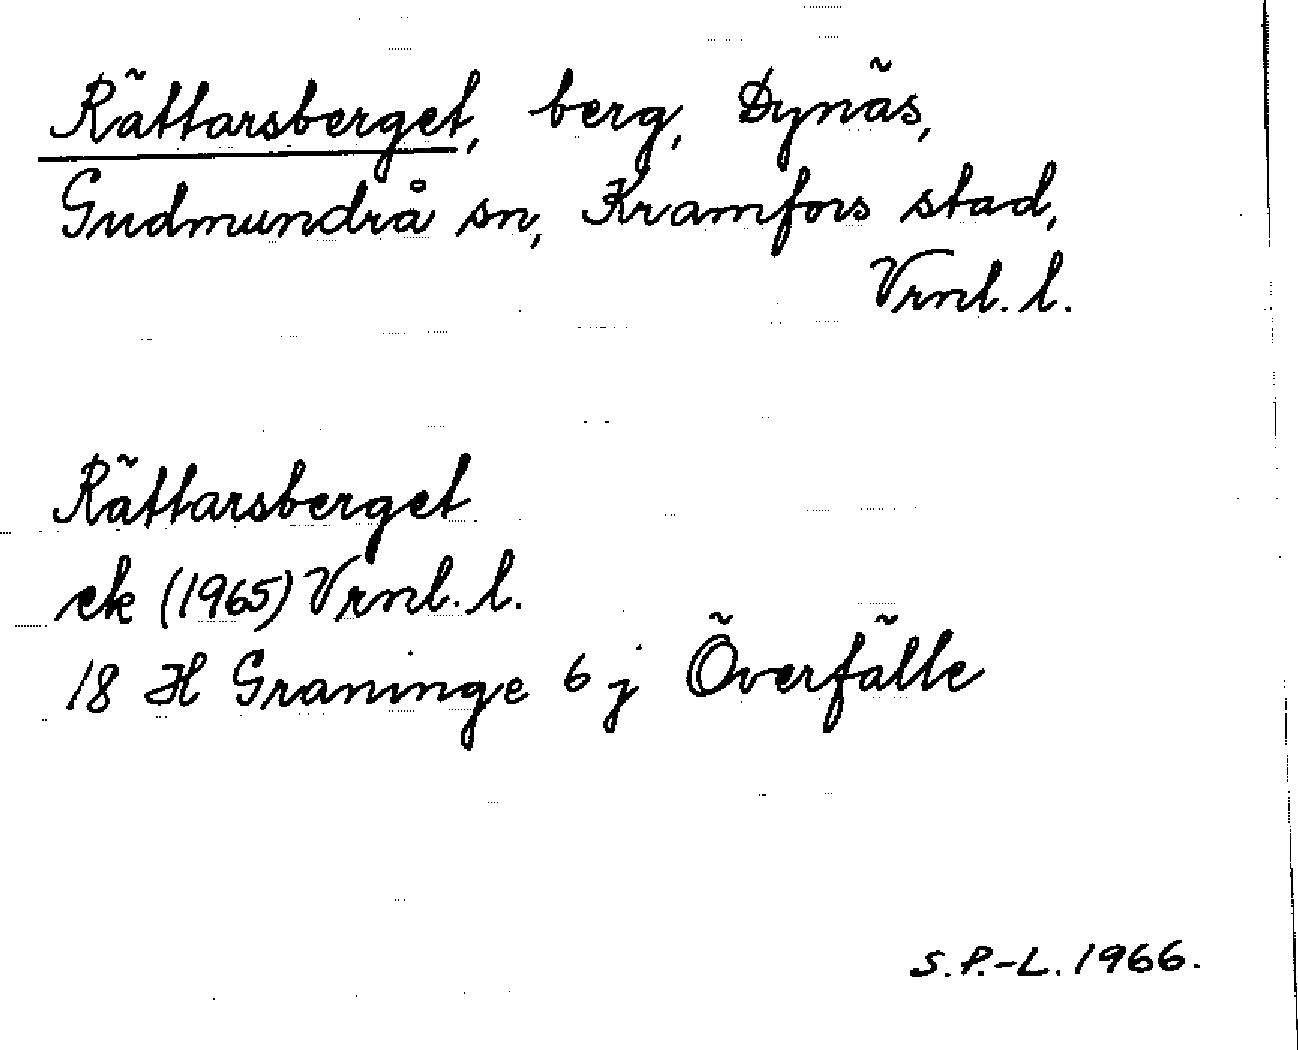 Rättarsberget, berg, Dynäs,
Gudmundrå sn, Kramfors stad,
Vrnl. l.
Rättarsberget
ek (1965) Vrnl. l.
18 H Graninge 6 j Överfälle
S. P.-L. 1966.